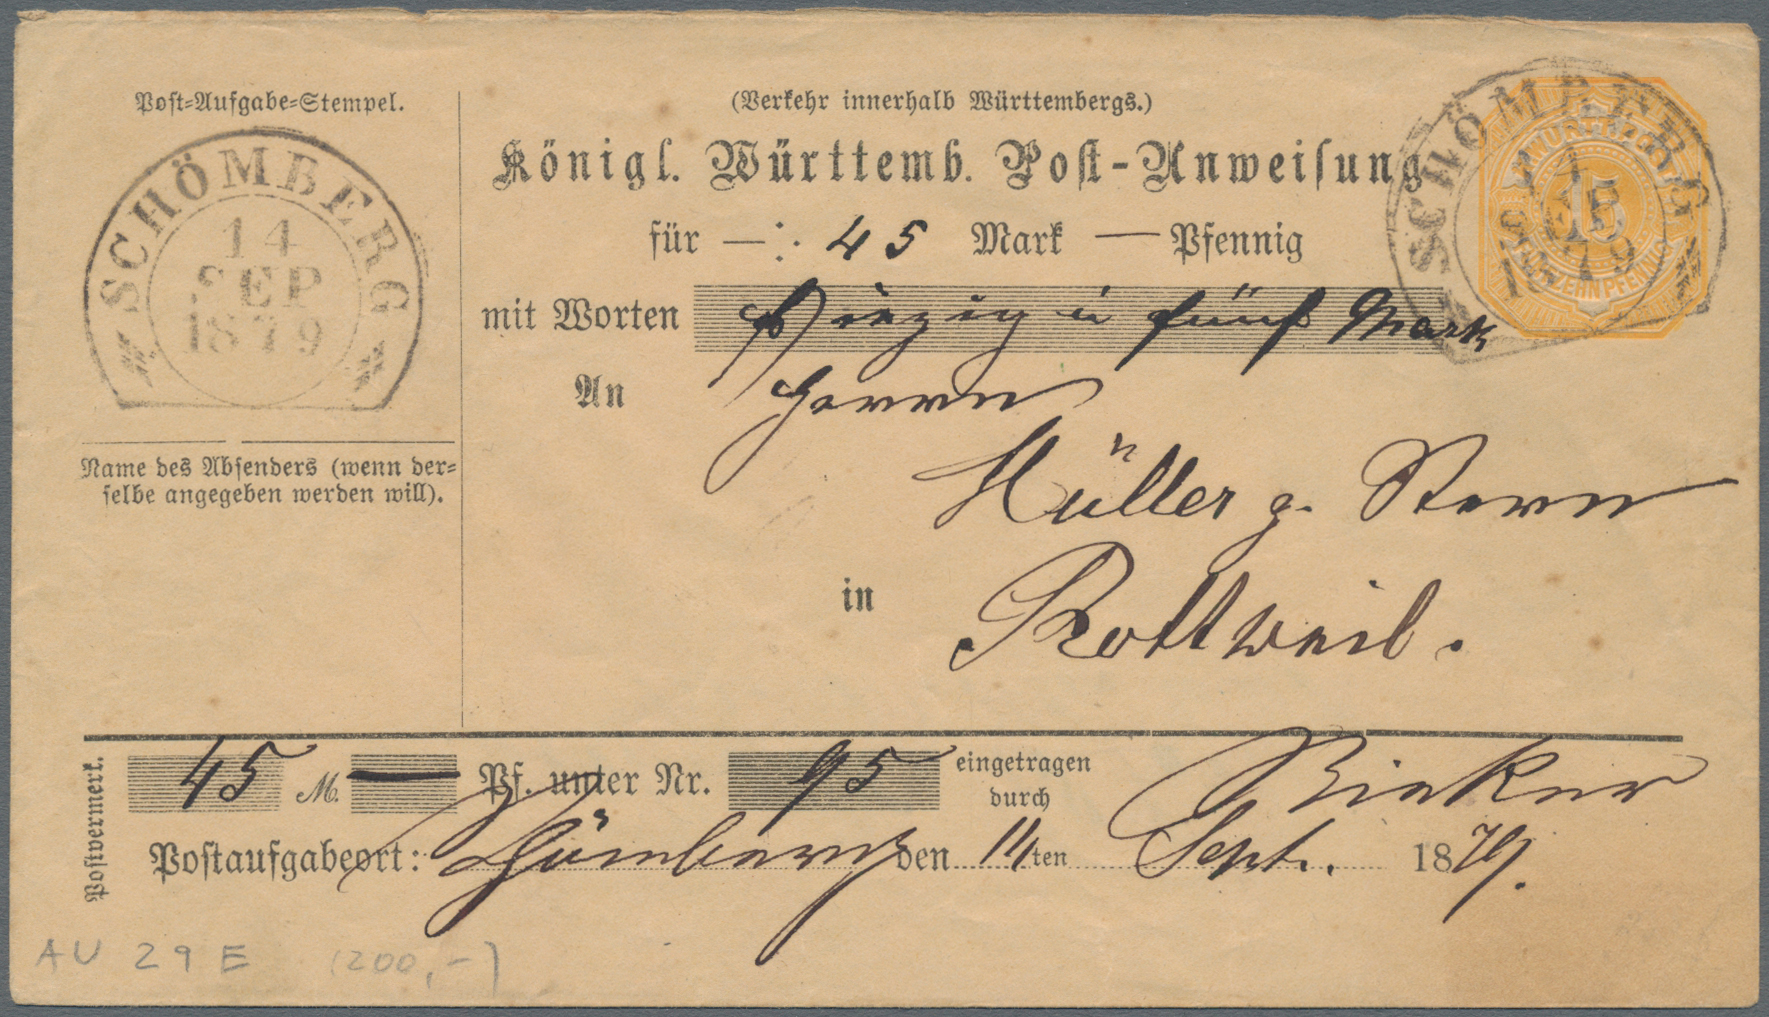 Post-Aufgabe-Stempel.
SCHÖMBERG
14
SEP
1879
Name des Absenders (wenn der-
selbe angegeben werden will).
(Verkehr innerhalb Württembergs.)
Königl. Württemb. Post-Anweisung
für — 45 Mark — Pfennig
mit Worten Vierzig u fünf Mark
An Herrn
Müller z. Stern
in Rottweil.
SCHÖMBERG
14
SEP
1879
15
Postvermerk.
45 M. — Pf. unter Nr. 95 eingetragen
durch
Postaufgabeort: Schömberg den 14ten Sept. 1879.
AU 29 E (200,-)